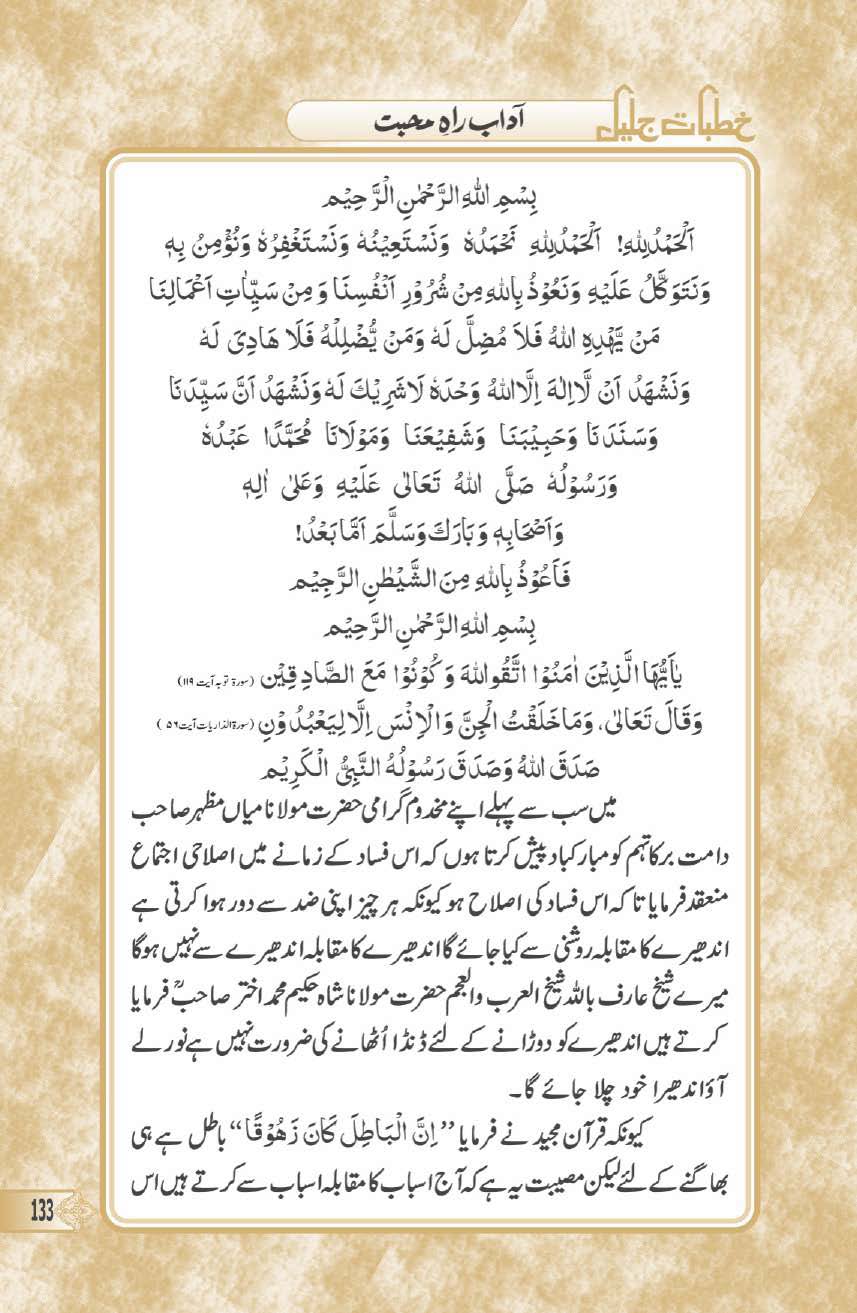 خطبات جلیل
آداب راہِ محبت
بِسْمِ اللهِ الرَّحْمٰنِ الرَّحِيْمِ
اَلْحَمْدُلِلّٰهِ! اَلْحَمْدُلِلّٰهِ نَحْمَدُهٗ وَنَسْتَعِيْنُهٗ وَنَسْتَغْفِرُهٗ وَنُؤْمِنُ بِهٖ
وَنَتَوَكَّلُ عَلَيْهِ وَنَعُوْذُ بِاللهِ مِنْ شُرُوْرِ اَنْفُسِنَا وَمِنْ سَيِّاٰتِ اَعْمَالِنَا
مَنْ يَّهْدِهِ اللهُ فَلَا مُضِلَّ لَهٗ وَمَنْ يُّضْلِلْهُ فَلَا هَادِىَ لَهٗ
وَنَشْهَدُ اَنْ لَّااِلٰهَ اِلَّااللهُ وَحْدَهٗ لَاشَرِيْكَ لَهٗ وَنَشْهَدُ اَنَّ سَيِّدَنَا
وَسَنَدَنَا وَحَبِيْبَنَا وَشَفِيْعَنَا وَمَوْلَانَا مُحَمَّدًا عَبْدُهٗ
وَرَسُوْلُهٗ صَلَّى اللهُ تَعَالٰى عَلَيْهِ وَعَلٰى اٰلِهٖ
وَاَصْحَابِهٖ وَبَارَكَ وَسَلَّمَ اَمَّا بَعْدُ!
فَاَعُوْذُ بِاللهِ مِنَ الشَّيْطٰنِ الرَّجِيْمِ
بِسْمِ اللهِ الرَّحْمٰنِ الرَّحِيْمِ
يٰاَيُّهَا الَّذِيْنَ اٰمَنُوْا اتَّقُوااللهَ وَكُوْنُوْا مَعَ الصَّادِقِيْن (سورۃ توبہ آیت ۱۱۹)
وَقَالَ تَعَالٰى، وَمَا خَلَقْتُ الْجِنَّ وَالْاِنْسَ اِلَّا لِيَعْبُدُوْنِ (سورۃ الذاریات آیت ۵۶)
صَدَقَ اللهُ وَصَدَقَ رَسُوْلُهُ النَّبِىُّ الْكَرِيْمِ
میں سب سے پہلے اپنے مخدوم گرامی حضرت مولانا میاں مظہر صاحب
دامت برکاتہم کو مبارکباد پیش کرتا ہوں کہ اس فساد کے زمانے میں اصلاحی اجتماع
منعقد فرمایا تاکہ اس فساد کی اصلاح ہو کیونکہ ہر چیز اپنی ضد سے دور ہوا کرتی ہے
اندھیرے کا مقابلہ روشنی سے کیا جائے گا اندھیرے کا مقابلہ اندھیرے سے نہیں ہوگا
میرے شیخ عارف باللہ شیخ العرب والعجم حضرت مولانا شاہ حکیم محمد اختر صاحبؒ فرمایا
کرتے ہیں اندھیرے کو دوڑانے کے لئے ڈنڈا اُٹھانے کی ضرورت نہیں ہے نور لے
آؤ اندھیرا خود چلا جائے گا۔
کیونکہ قرآن مجید نے فرمایا ’’اِنَّ الْبَاطِلَ كَانَ زَهُوْقًا‘‘ باطل ہے ہی
بھاگنے کے لئے لیکن مصیبت یہ ہے کہ آج اسباب کا مقابلہ اسباب سے کرتے ہیں اس
133